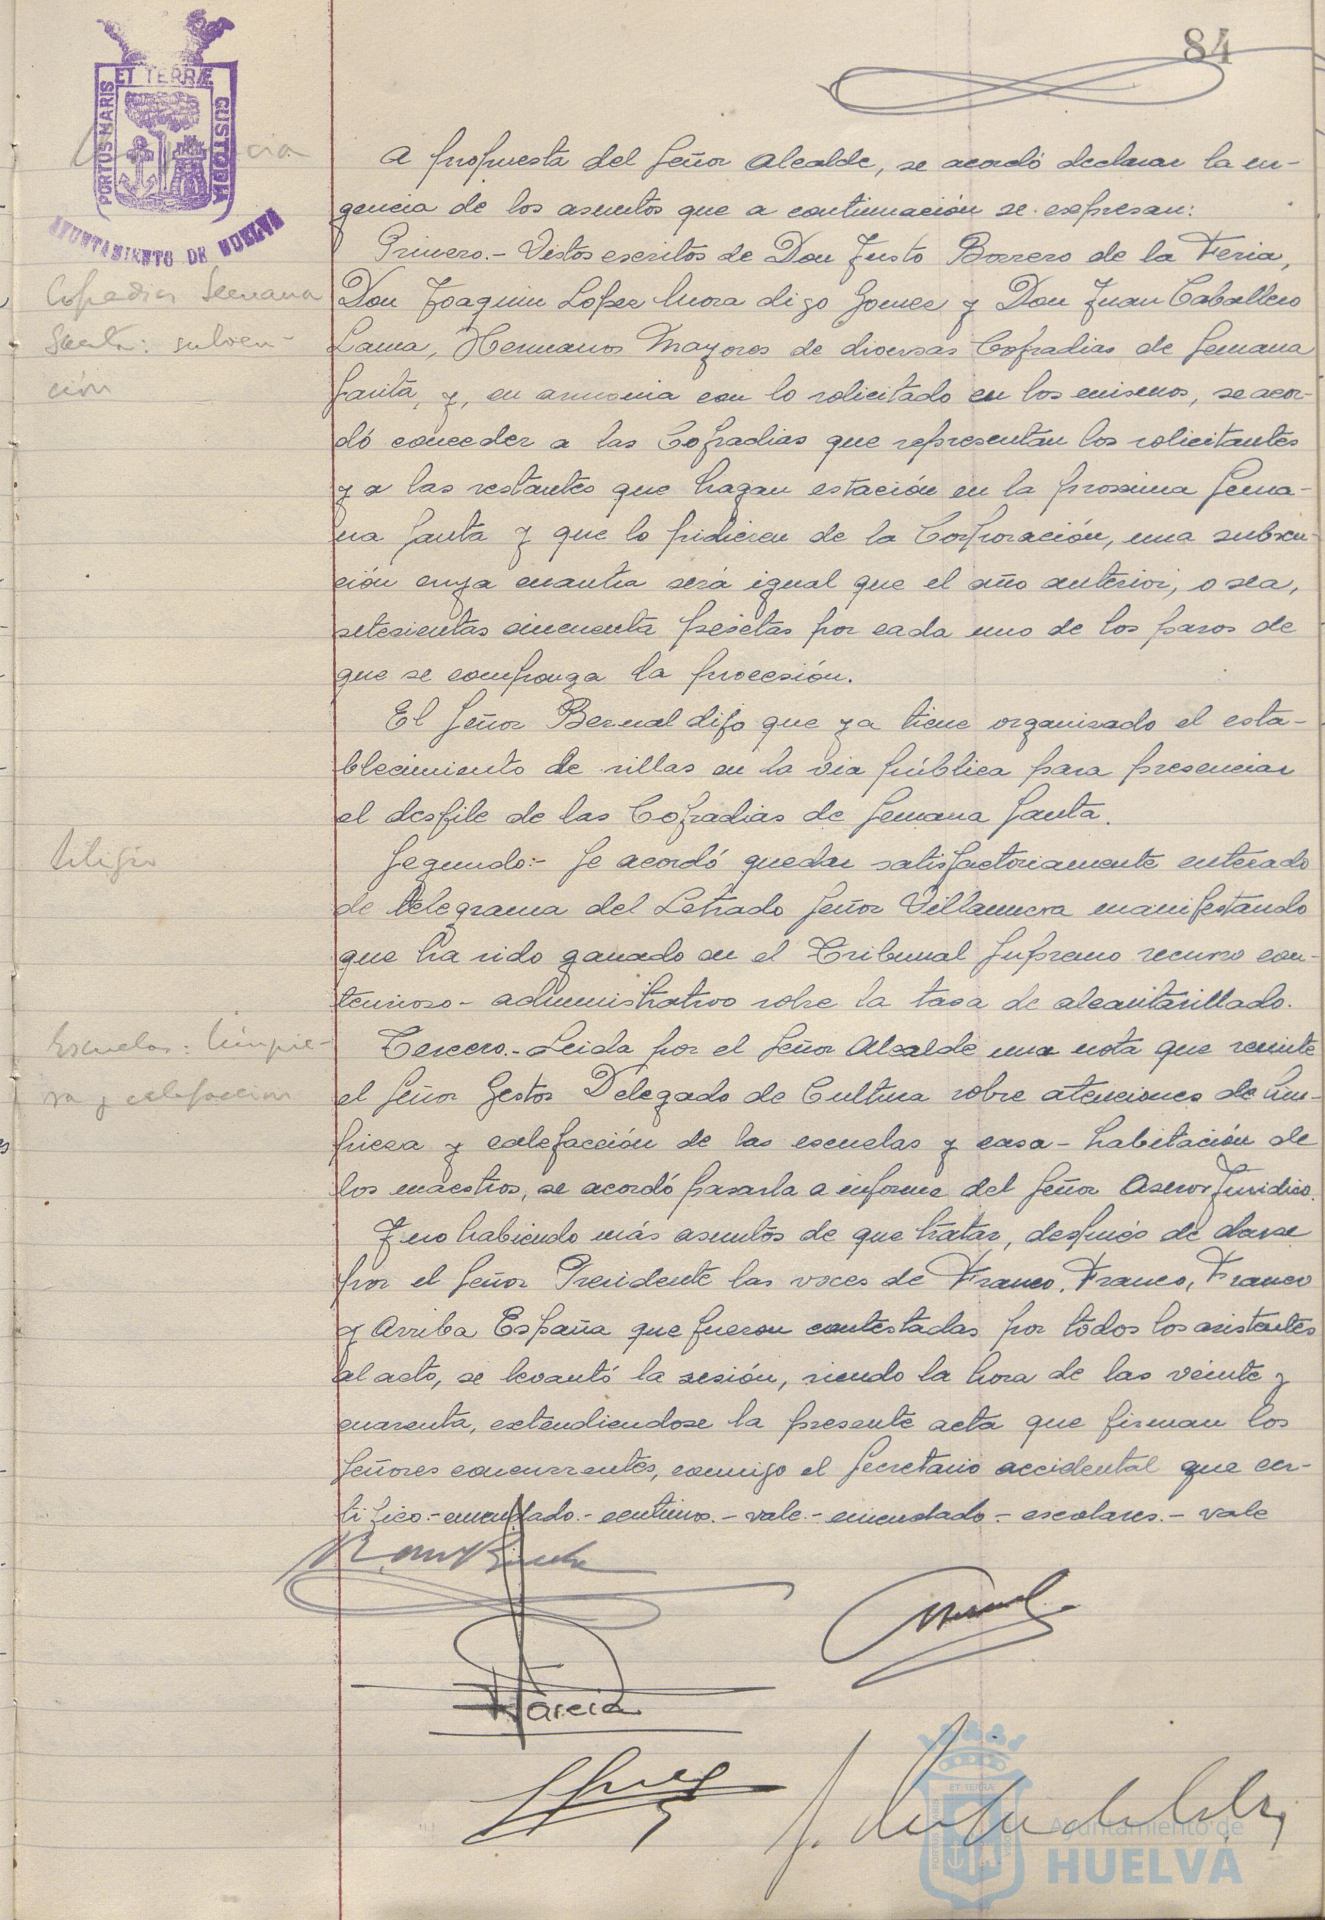 84
PORTUS MARIS ET TERRÆ CUSTODIA
AYUNTAMIENTO DE HUELVA
A propuesta del Señor Alcalde, se acordó declarar la ur-
gencia de los asuntos que a continuación se expresan:
Cofradias Semana
Santa: subven-
ción
Primero.- Vistos escritos de Don Justo Borrero de la Feria,
Don Joaquin Lopez Mora digo Gomez y Don Juan Caballero
Lama, Hermanos Mayores de diversas Cofradias de Semana
Santa, y, en armonia con lo solicitado en los mismos, se acor-
dó conceder a las Cofradias que representan los solicitantes
y a las restantes que hagan estación en la proxima Sema-
na Santa y que lo pidieren de la Corporación, una subven-
ción cuya cuantia será igual que el año anterior, o sea,
setesientas cincuenta pesetas por cada uno de los pasos de
que se componga la procesión.
El Señor Bernal dijo que ya tiene organizado el esta-
blecimiento de sillas en la via pública para presenciar
el desfile de las Cofradias de Semana Santa.
Litigio
Segundo:- Se acordó quedar satisfactoriamente enterado
de telegrama del Letrado Señor Villanueva manifestando
que ha sido ganado en el Tribunal Supremo recurso con-
tencioso-administrativo sobre la tasa de alcantarillado.
Escuelas: limpie-
za y calefaccion
Tercero.- Leida por el Señor Alcalde una nota que remite
el Señor Gestor Delegado de Cultura sobre atenciones de lim-
pieza y calefacción de las escuelas y casa-habitación de
los maestros, se acordó pasarla a informe del Señor Asesor Juridico.
Y no habiendo más asuntos de que tratar, después de darse
por el Señor Presidente las voces de Franco, Franco, Franco
y Arriba España que fueron contestadas por todos los asistentes
al acto, se levantó la sesión, siendo la hora de las veinte y
cuarenta, extendiendose la presente acta que firman los
Señores concurrentes, conmigo el Secretario accidental que cer-
tifico.- enmendado.- centimos.- vale.- enmendado - escolares.- vale
Garcia
Ayuntamiento de
HUELVA